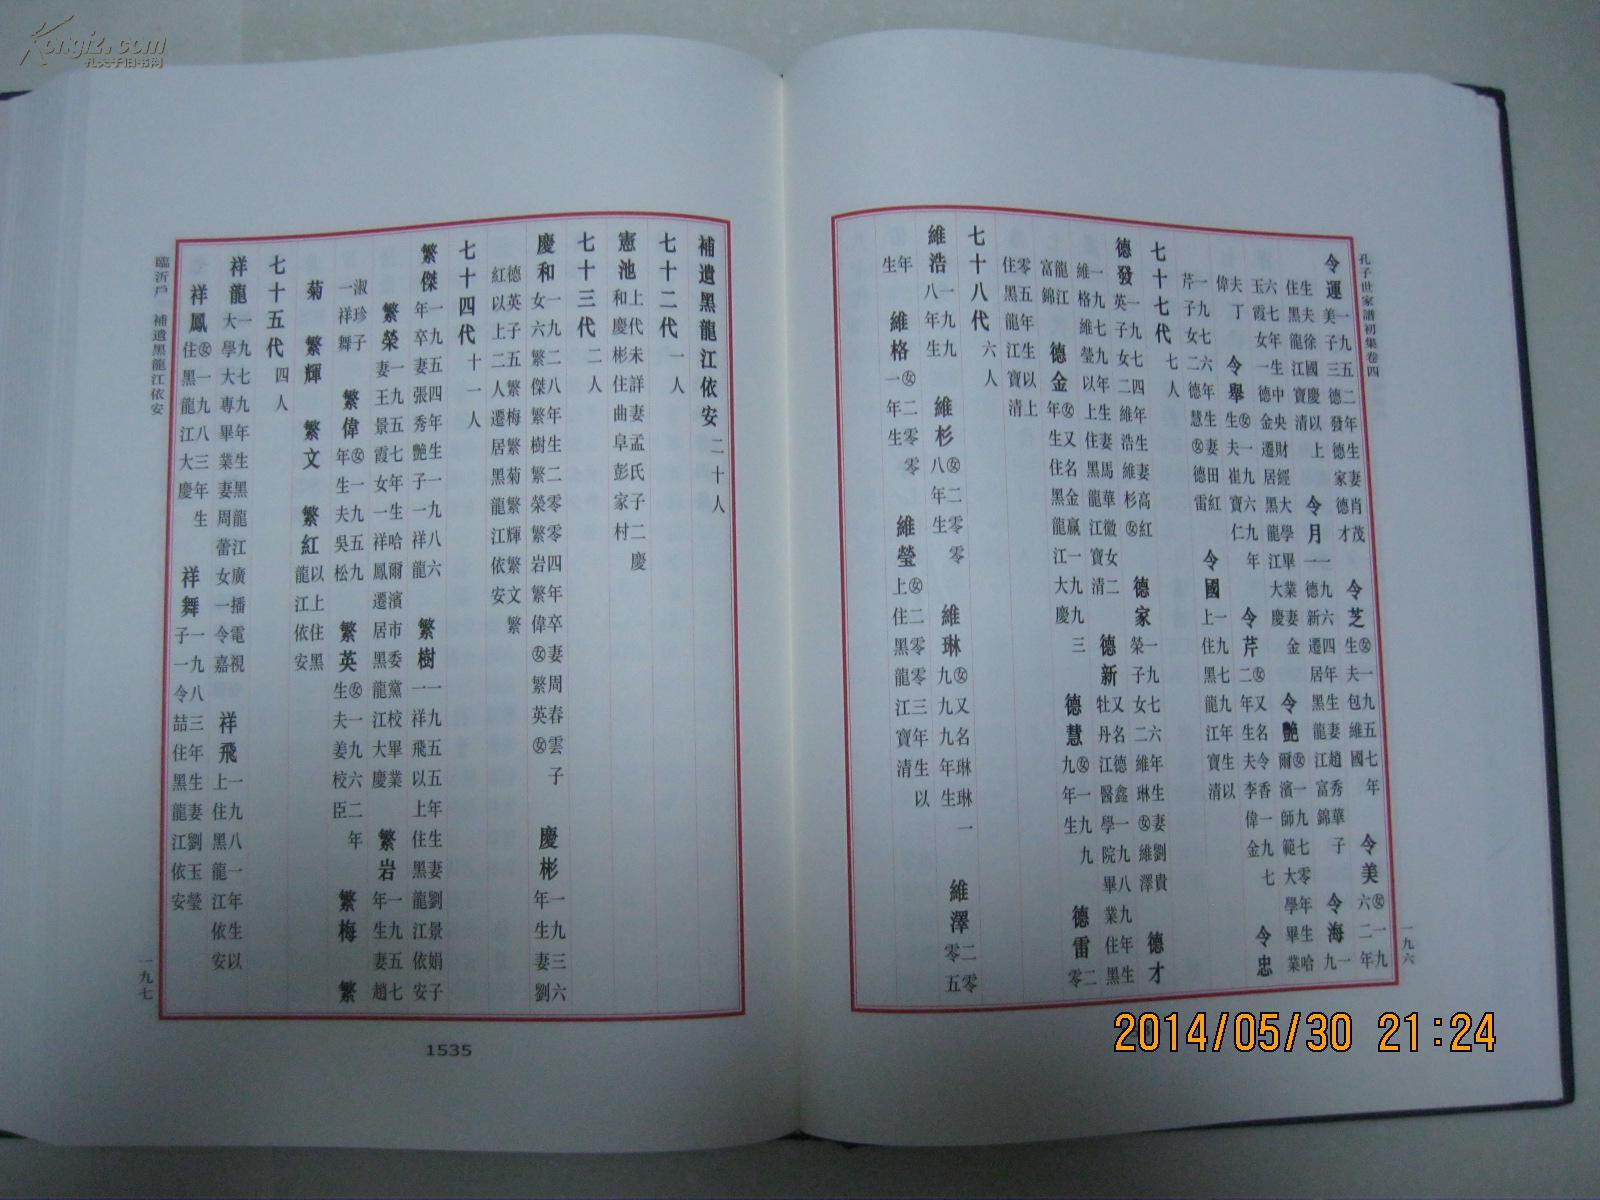 孔子世家譜初集卷四
一九六
令運 一九五二年生妻肖茂美子三德發德家德才 令芝 ㊛一九五七年生夫包維國 令美 ㊛一九六二年
生夫徐國慶以上住黑龍江寶清 令月 一九六四年生妻趙秀華子一德新遷居黑龍江富錦 令海 一九
六七年生中央財經大學畢業妻金玉霞女一德金遷居黑龍江大慶 令艷 ㊛一九七零年生哈爾濱師範大學畢業
夫丁偉 令舉 ㊛一九六九年生夫崔寶仁 令芹 ㊛又名令香一九七二年生夫李偉金 令忠
一九七六年生妻田紅芹子女二德慧㊛德雷 令國 一九七九年生以上住黑龍江寶清
七十七代 七人
德發 一九七四年生妻高紅英子女二維浩維杉㊛ 德家 一九七六年生妻劉貴榮子女二維琳㊛維澤 德才
一九七九年生妻馬華徽女二維格維瑩以上住黑龍江寶清 德新 又名德鑫一九八九年生牡丹江醫學院畢業住黑
龍江富錦 德金 ㊛又名金贏一九九三年生住黑龍江大慶 德慧 ㊛一九九九年生 德雷 二零
零五年生以上住黑龍江寶清
七十八代 六人
維浩 一九九八年生 維杉 ㊛二零零八年生 維琳 ㊛又名琳琳一九九九年生 維澤 二零零五
年生 維格 ㊛二零零一年生 維瑩 ㊛二零零三年生以上住黑龍江寶清
補遺黑龍江依安 二十人
七十二代 一人
憲池 上代未詳妻孟氏子二慶和慶彬住曲阜彭家村
七十三代 二人
慶和 一九二八年生二零零四年卒妻周春雲子女六繁傑繁樹繁榮繁岩繁偉㊛繁英㊛ 慶彬 一九三六年生妻劉
德英子五繁梅繁菊繁輝繁文繁紅以上二人遷居黑龍江依安
七十四代 十一人
繁傑 一九五四年生一九八六年卒妻張秀艷子一祥龍 繁樹 一九五五年生妻劉景娟子一祥飛以上住黑龍江依安
繁榮 一九五七年生哈爾濱市委黨校畢業妻王景霞女一祥鳳遷居黑龍江大慶 繁岩 一九五七年生妻趙
淑珍子一祥舞 繁偉 ㊛一九五九年生夫吳松 繁英 ㊛一九六二年生夫姜校臣 繁梅 繁
菊 繁輝 繁文 繁紅 以上住黑龍江依安
七十五代 四人
祥龍 一九七九年生黑龍江廣播電視大學大專畢業妻周蕾女一令嘉 祥飛 一九八一年生以上住黑龍江依安
祥鳳 ㊛一九八三年生住黑龍江大慶 祥舞 一九八三年生妻劉玉瑩子一令喆住黑龍江依安
臨沂戶 補遺黑龍江依安
一九七
1535
2014/05/30 21:24
Kongfz.com
孔夫子旧书网